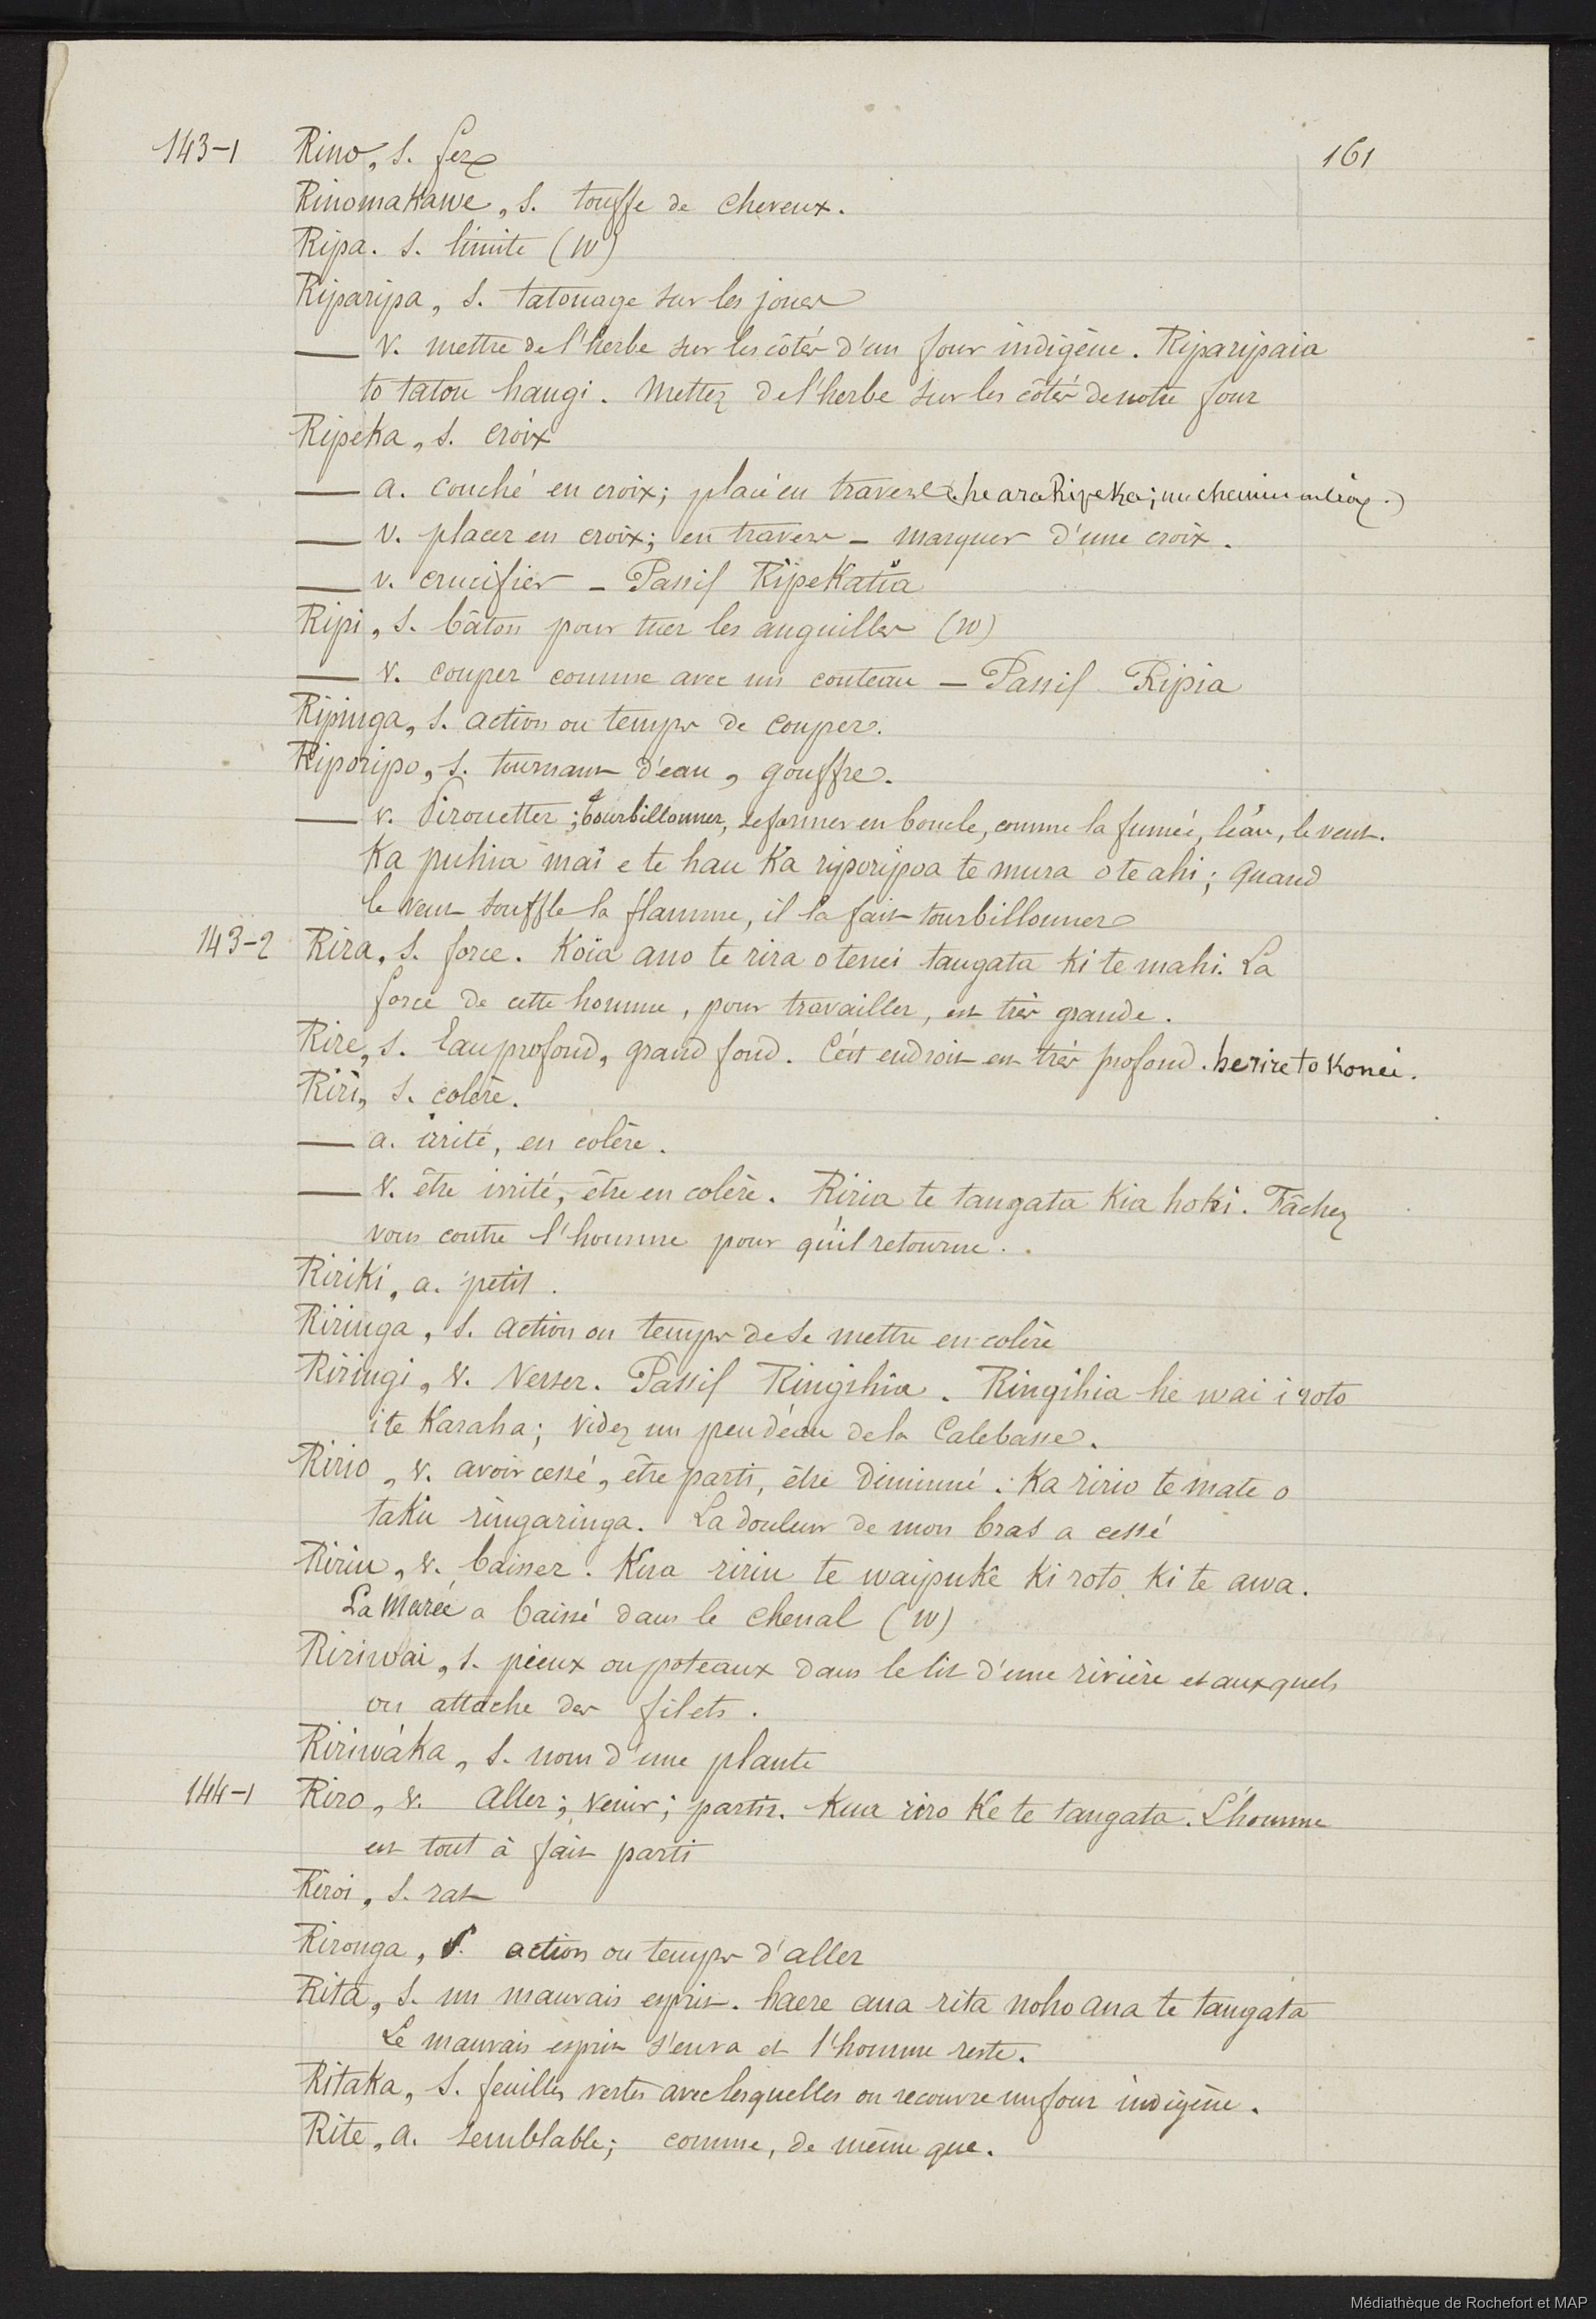 143-1 Rino, s. fer 161
Rinomakawe, s. touffe de cheveux.
Ripa. s. limite (W)
Riparipa, s. tatouage sur les joues
— v. mettre de l'herbe sur les côtés d'un four indigène. Riparipaia
to tatou hangi. Mettez de l'herbe sur les côtés de notre four
Ripeka, s. croix
— a. couché en croix; placé en travers (he ara Ripeka; un chemin en croix.)
— v. placer en croix; en travers – marquer d'une croix.
— v. crucifier – Passif Ripekatia
Ripi, s. bâton pour tuer les anguilles (W)
— v. couper comme avec un couteau – Passif Ripia
Ripinga, s. action ou temps de couper.
Riporipo, s. tournant d'eau, gouffre.
— v. Pirouetter; tourbillonner, se former en boucle, comme la fumée, l'eau, le vent.
Ka puhia mai e te hau ka riporipoa te mura o te ahi; quand
le vent souffle la flamme, il la fait tourbillonner
143-2 Rira, s. force. Koia ano te rira o tenei tangata ki te mahi. La
force de cette homme, pour travailler, est très grande.
Rire, s. Eau profond, grand fond. Cet endroit est très profond. he rire to konei.
Riri, s. colère.
— a. irité, en colère.
— v. être irrité, être en colère. Riria te tangata kia hoki. Fâchez
vous contre l'homme pour qu'il retourne.
Ririki, a. petit.
Riringa, s. action ou temps de se mettre en colère
Riringi, v. Verser. Passif Ringihia. Ringihia he wai i roto
i te Karaha; Videz un peu d'eau de la Calebasse.
Ririo, v. avoir cessé, être parti, être diminué. Ka ririo te mate o
taku ringaringa. La douleur de mon bras a cessé
Ririu, v. baisser. Kua ririu te waipuke ki roto ki te awa.
La Marée a baissé dans le chenal (W)
Ririwai, s. pieux ou poteaux dans le lit d'une rivière et auxquels
on attache des filets.
Ririwáka, s. nom d'une plante
144-1 Riro, v. Aller; Venir; partir. Kua riro Ke te tangata. L'homme
est tout à fait parti
Riroi, s. rat
Rironga, s. action ou temps d'aller
Rita, s. un mauvais esprit. haere ana rita noho ana te tangata
Le mauvais esprit s'en va et l'homme reste.
Ritaka, s. feuilles vertes avec lesquelles on recouvre un four indigène.
Rite, a. semblable; comme, de même que.
Médiathèque de Rochefort et MAP